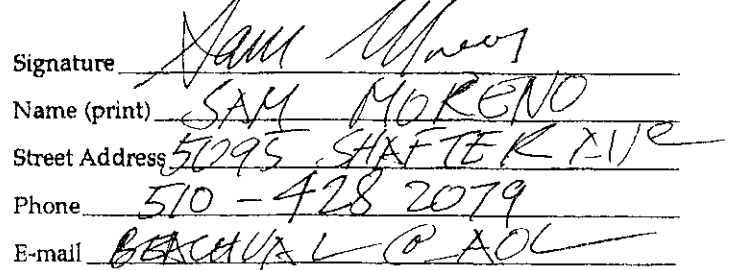 Signature Sam Moreno
Name (print) SAM MORENO
Street Address 5295 SHAFTER AVE
Phone 510-428 2079
E-mail BEACHVAL@AOL